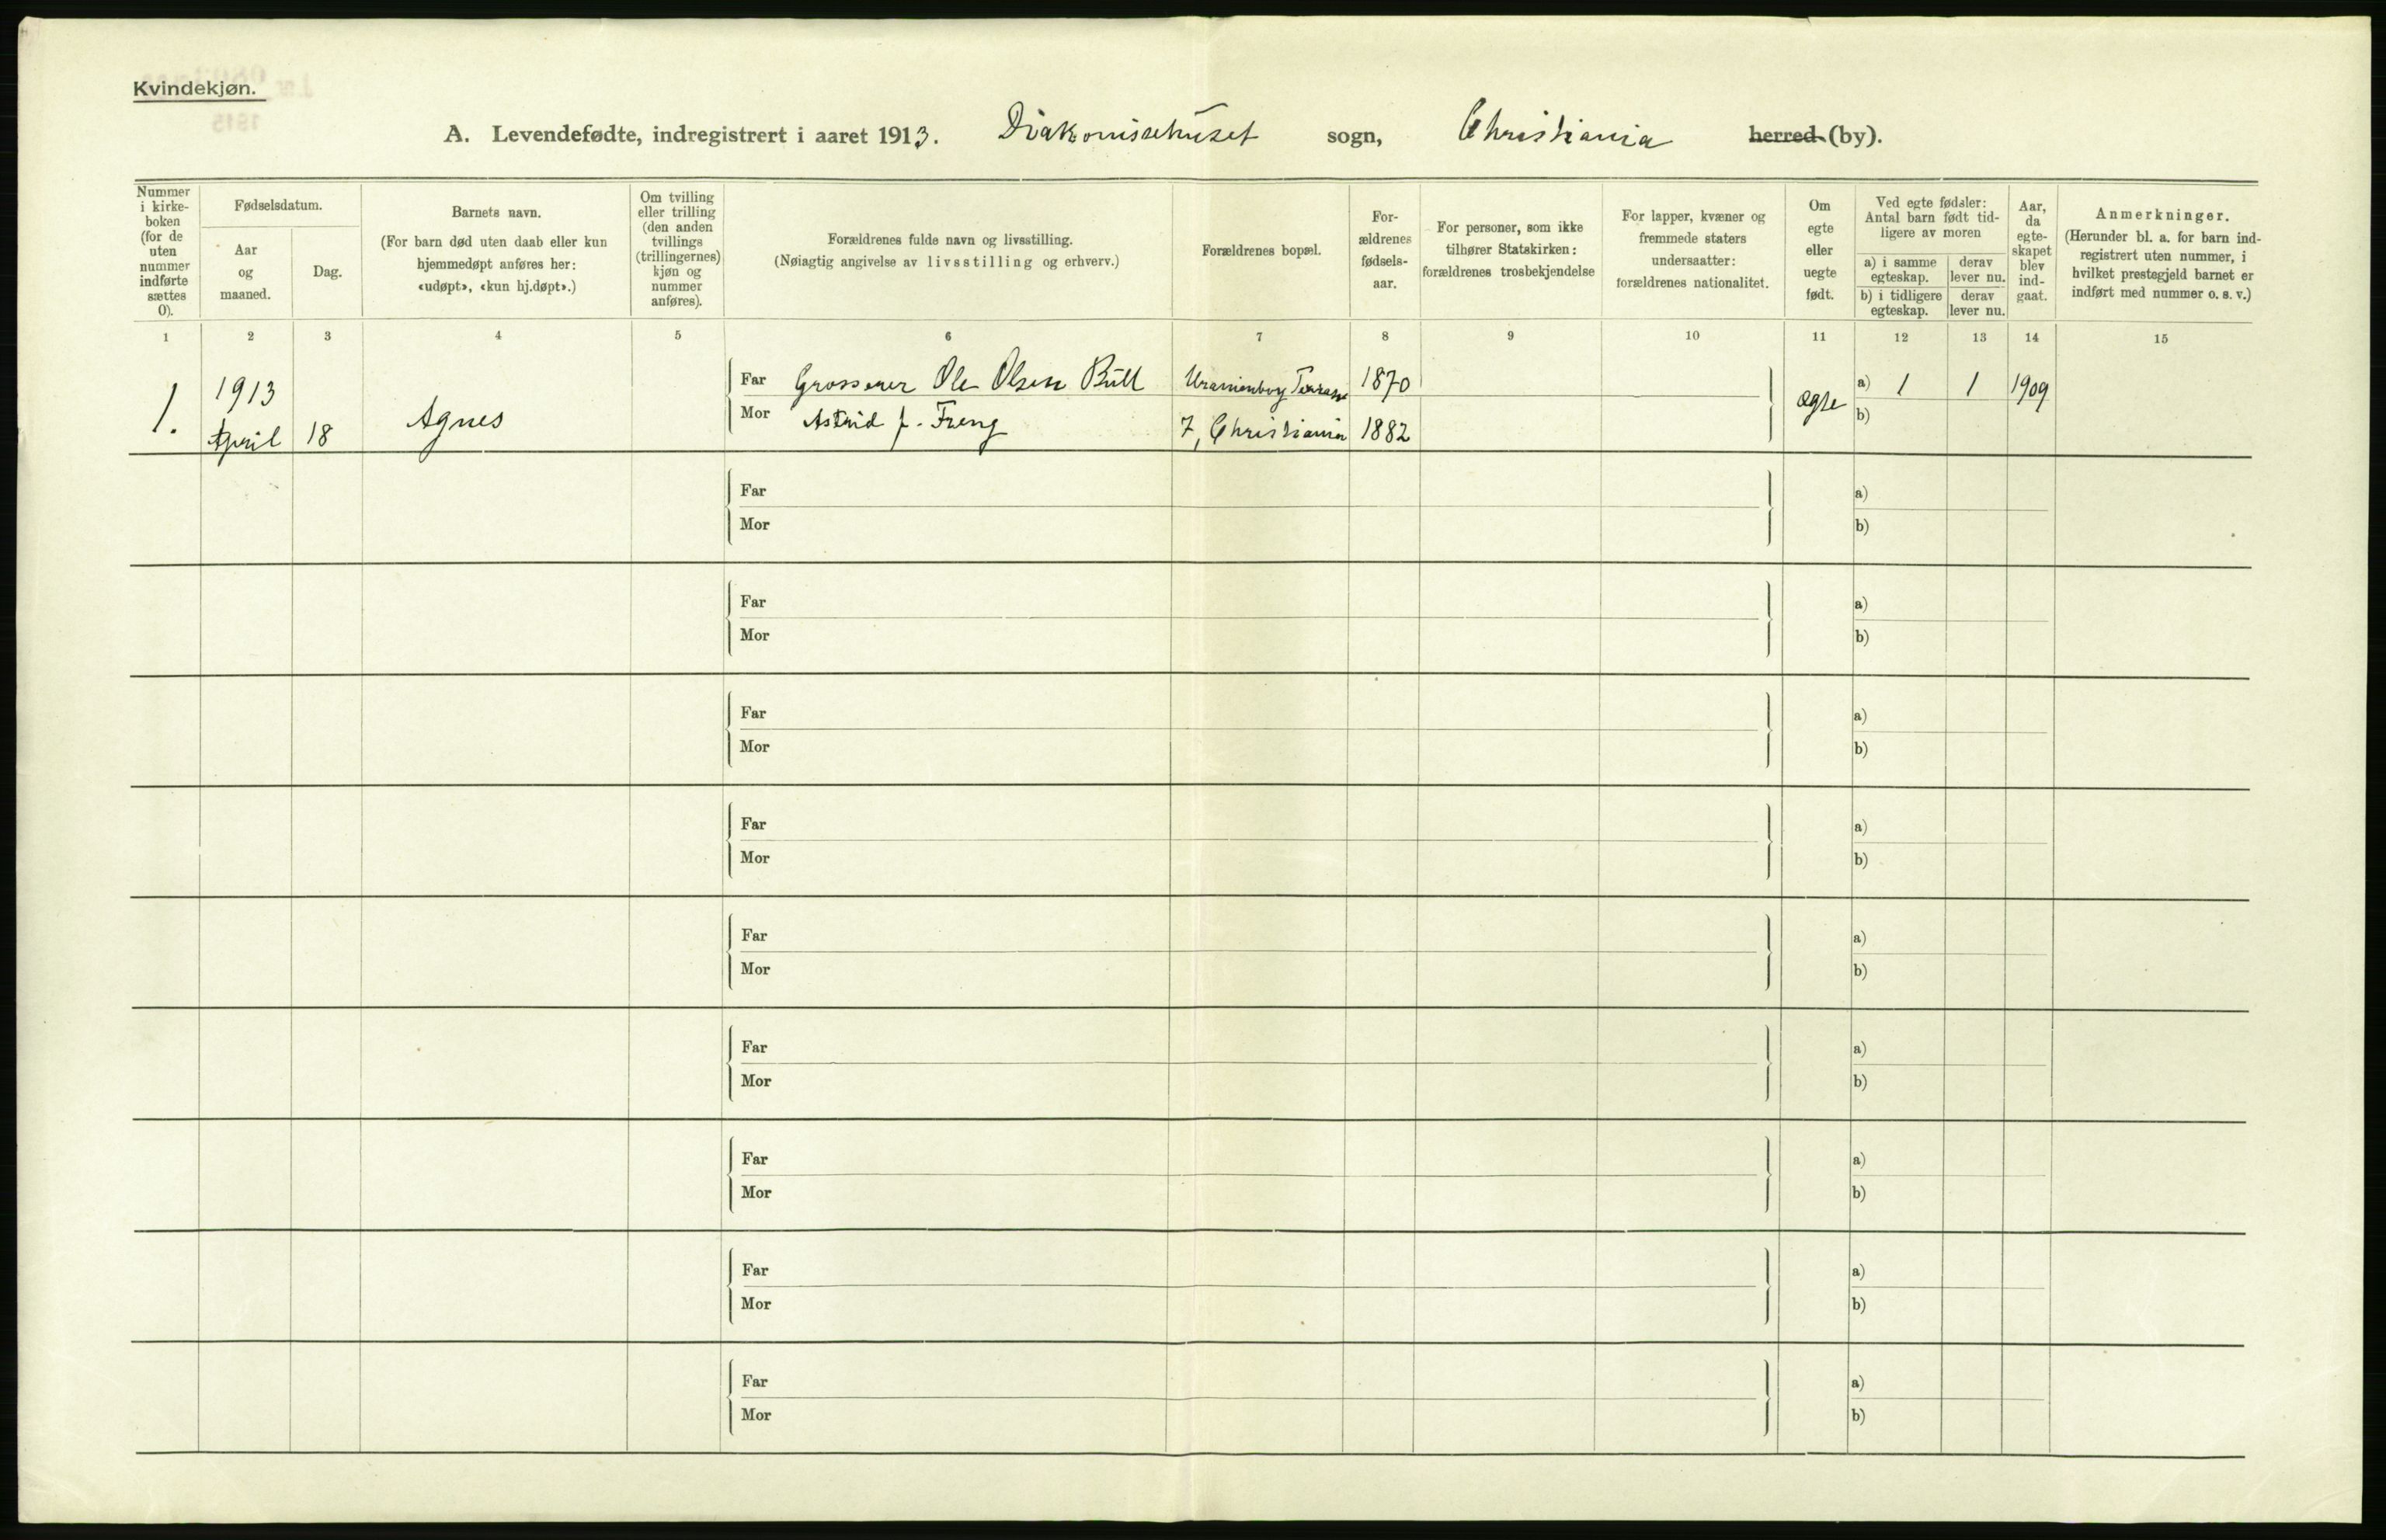 Kvindekjøn.
A. Levendefødte, indregistrert i aaret 1913. Diakonissehuset sogn, Christiania herred (by).
Nummer
i kirke-
boken
(for de
uten
nummer
indførte
sættes
0).
Fødselsdatum.
Aar
og
maaned.
Dag.
Barnets navn.
(For barn død uten daab eller kun
hjemmedøpt anføres her:
«udøpt», «kun hj.døpt».)
Om tvilling
eller trilling
(den anden
tvillings
(trillingernes)
kjøn og
nummer
anføres).
Forældrenes fulde navn og livsstilling.
(Nøiagtig angivelse av livsstilling og erhverv.)
Forældrenes bopæl.
For-
ældrenes
fødsels-
aar.
For personer, som ikke
tilhører Statskirken:
forældrenes trosbekjendelse
For lapper, kvæner og
fremmede staters
undersaatter:
forældrenes nationalitet.
Om
egte
eller
uegte
født.
Ved egte fødsler:
Antal barn født tid-
ligere av moren
a) i samme
egteskap.
derav
lever nu.
b) i tidligere
egteskap.
derav
lever nu.
Aar,
da
egte-
skapet
blev
ind-
gaat.
Anmerkninger.
(Herunder bl. a. for barn ind-
registrert uten nummer, i
hvilket prestegjeld barnet er
indført med nummer o. s. v.)
1 2 3 4 5 6 7 8 9 10 11 12 13 14 15
1. 1913 April 18 Agnes
Far Grosserer Ole Olsen Bull Uranienborg Terrasse 1870
Mor Astrid f. Freng 7, Christiania 1882
ægte
a) 1 1 1909
b)
Far a)
Mor b)
Far a)
Mor b)
Far a)
Mor b)
Far a)
Mor b)
Far a)
Mor b)
Far a)
Mor b)
Far a)
Mor b)
Far a)
Mor b)
Far a)
Mor b)